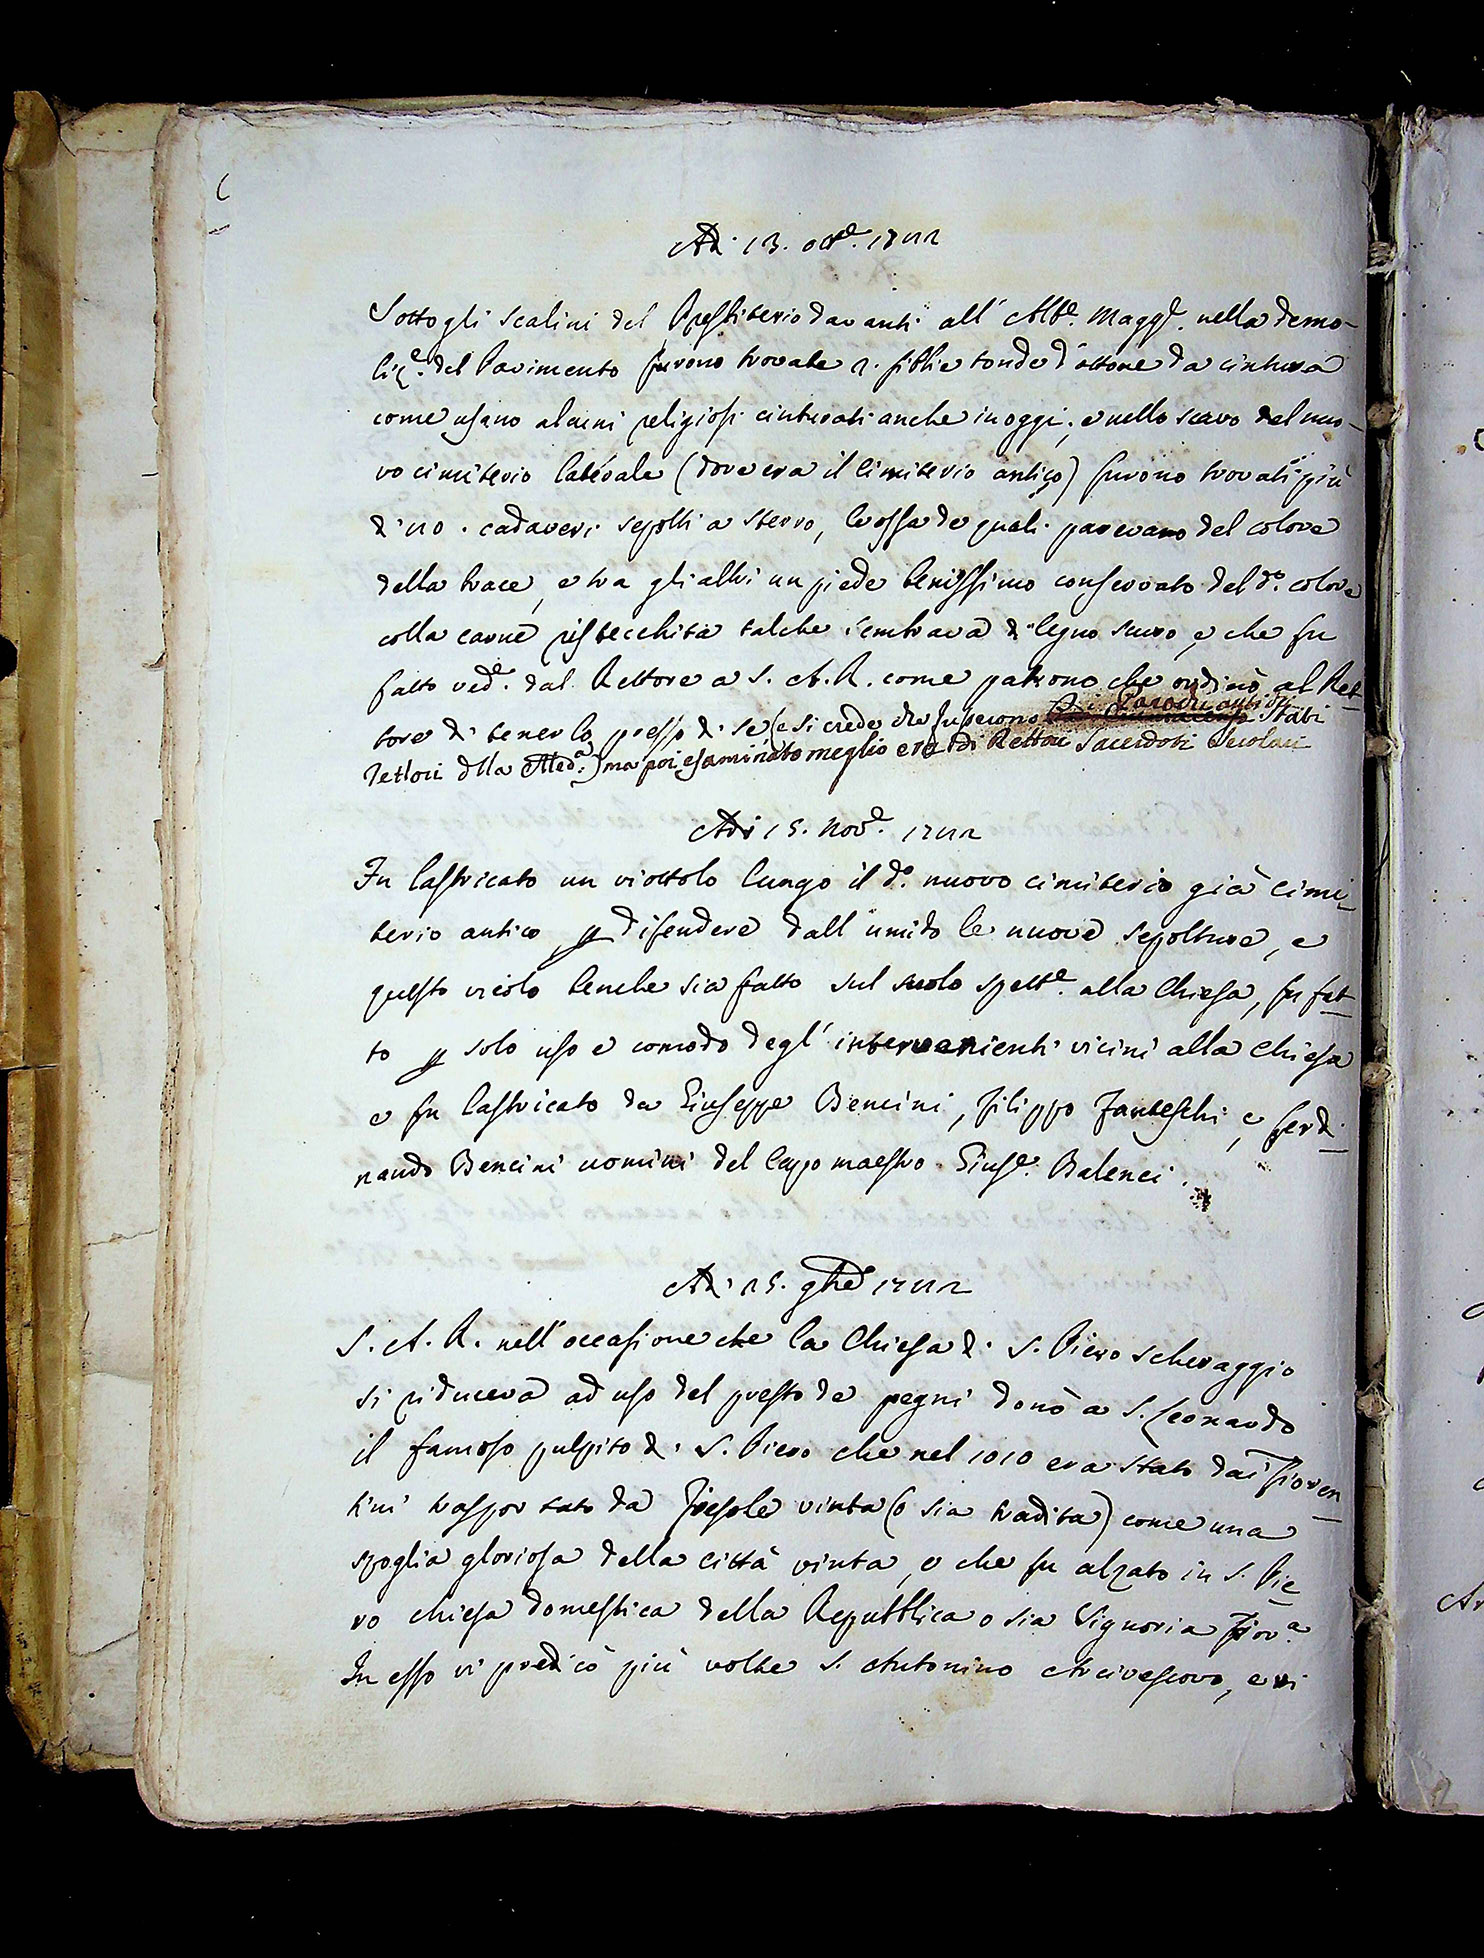 Adì 13. ott.e 1782
Sotto gli scalini del Presbiterio davanti all' Alt.e Magg.e nella demo-
liz.e del Pavimento furono trovate 2. fibbie tonde d'ottone da cintura
come usano alcuni religiosi cinturati anche in oggi, e nello scavo del nuo-
vo cimiterio laterale (dove era il Cimiterio antico) furono trovati più
di 20. cadaveri sepolti a sterro, le ossa de quali parevano del colore
della brace, e tra gli altri un piede benissimo conservato del d.o colore
colla carne risecchita talche sembrava di legno scuro, e che fu
fatto ved.e dal Rettore a S. A. R. come patrono che ordinò al Ret-
tore di tenerlo presso di se (e si crede che fussero i Parochi antichi stati
rettori dlla Med.a) ma poi esaminato meglio era di Rettori Sacerdoti Secolari
Adì 15. Nov.e 1782
Fu lastricato un viottolo lungo il d.o nuovo cimiterio già cimi-
terio antico p difendere dall umido le nuove sepolture, e
questo viottolo benche sia fatto sul suolo spett.e alla Chiesa, fu fat-
to p solo uso e comodo degl' intervenienti vicini alla chiesa
e fu lastricato da Giuseppe Bencini, Filippo Fanteschi, e Ferdi-
nando Bencini uomini del Capo maestro Gius.e Balenci.
Adì 25. 9bre 1782
S. A. R. nell'occasione che la Chiesa di S. Piero scheraggio
si riduceva ad uso del presto de pegni donò a S. Leonardo
il famoso pulpito di S. Piero che nel 1010 era stato dai Fioren-
tini trasportato da Fiesole vinta (o sia tradita) come una
spoglia gloriosa della città vinta, e che fu alzato in S. Pie-
ro chiesa domestica della Repubblica o sia Signoria Fior.a
In esso vi predicò più volte S. Antonino Arcivescovo, e vi